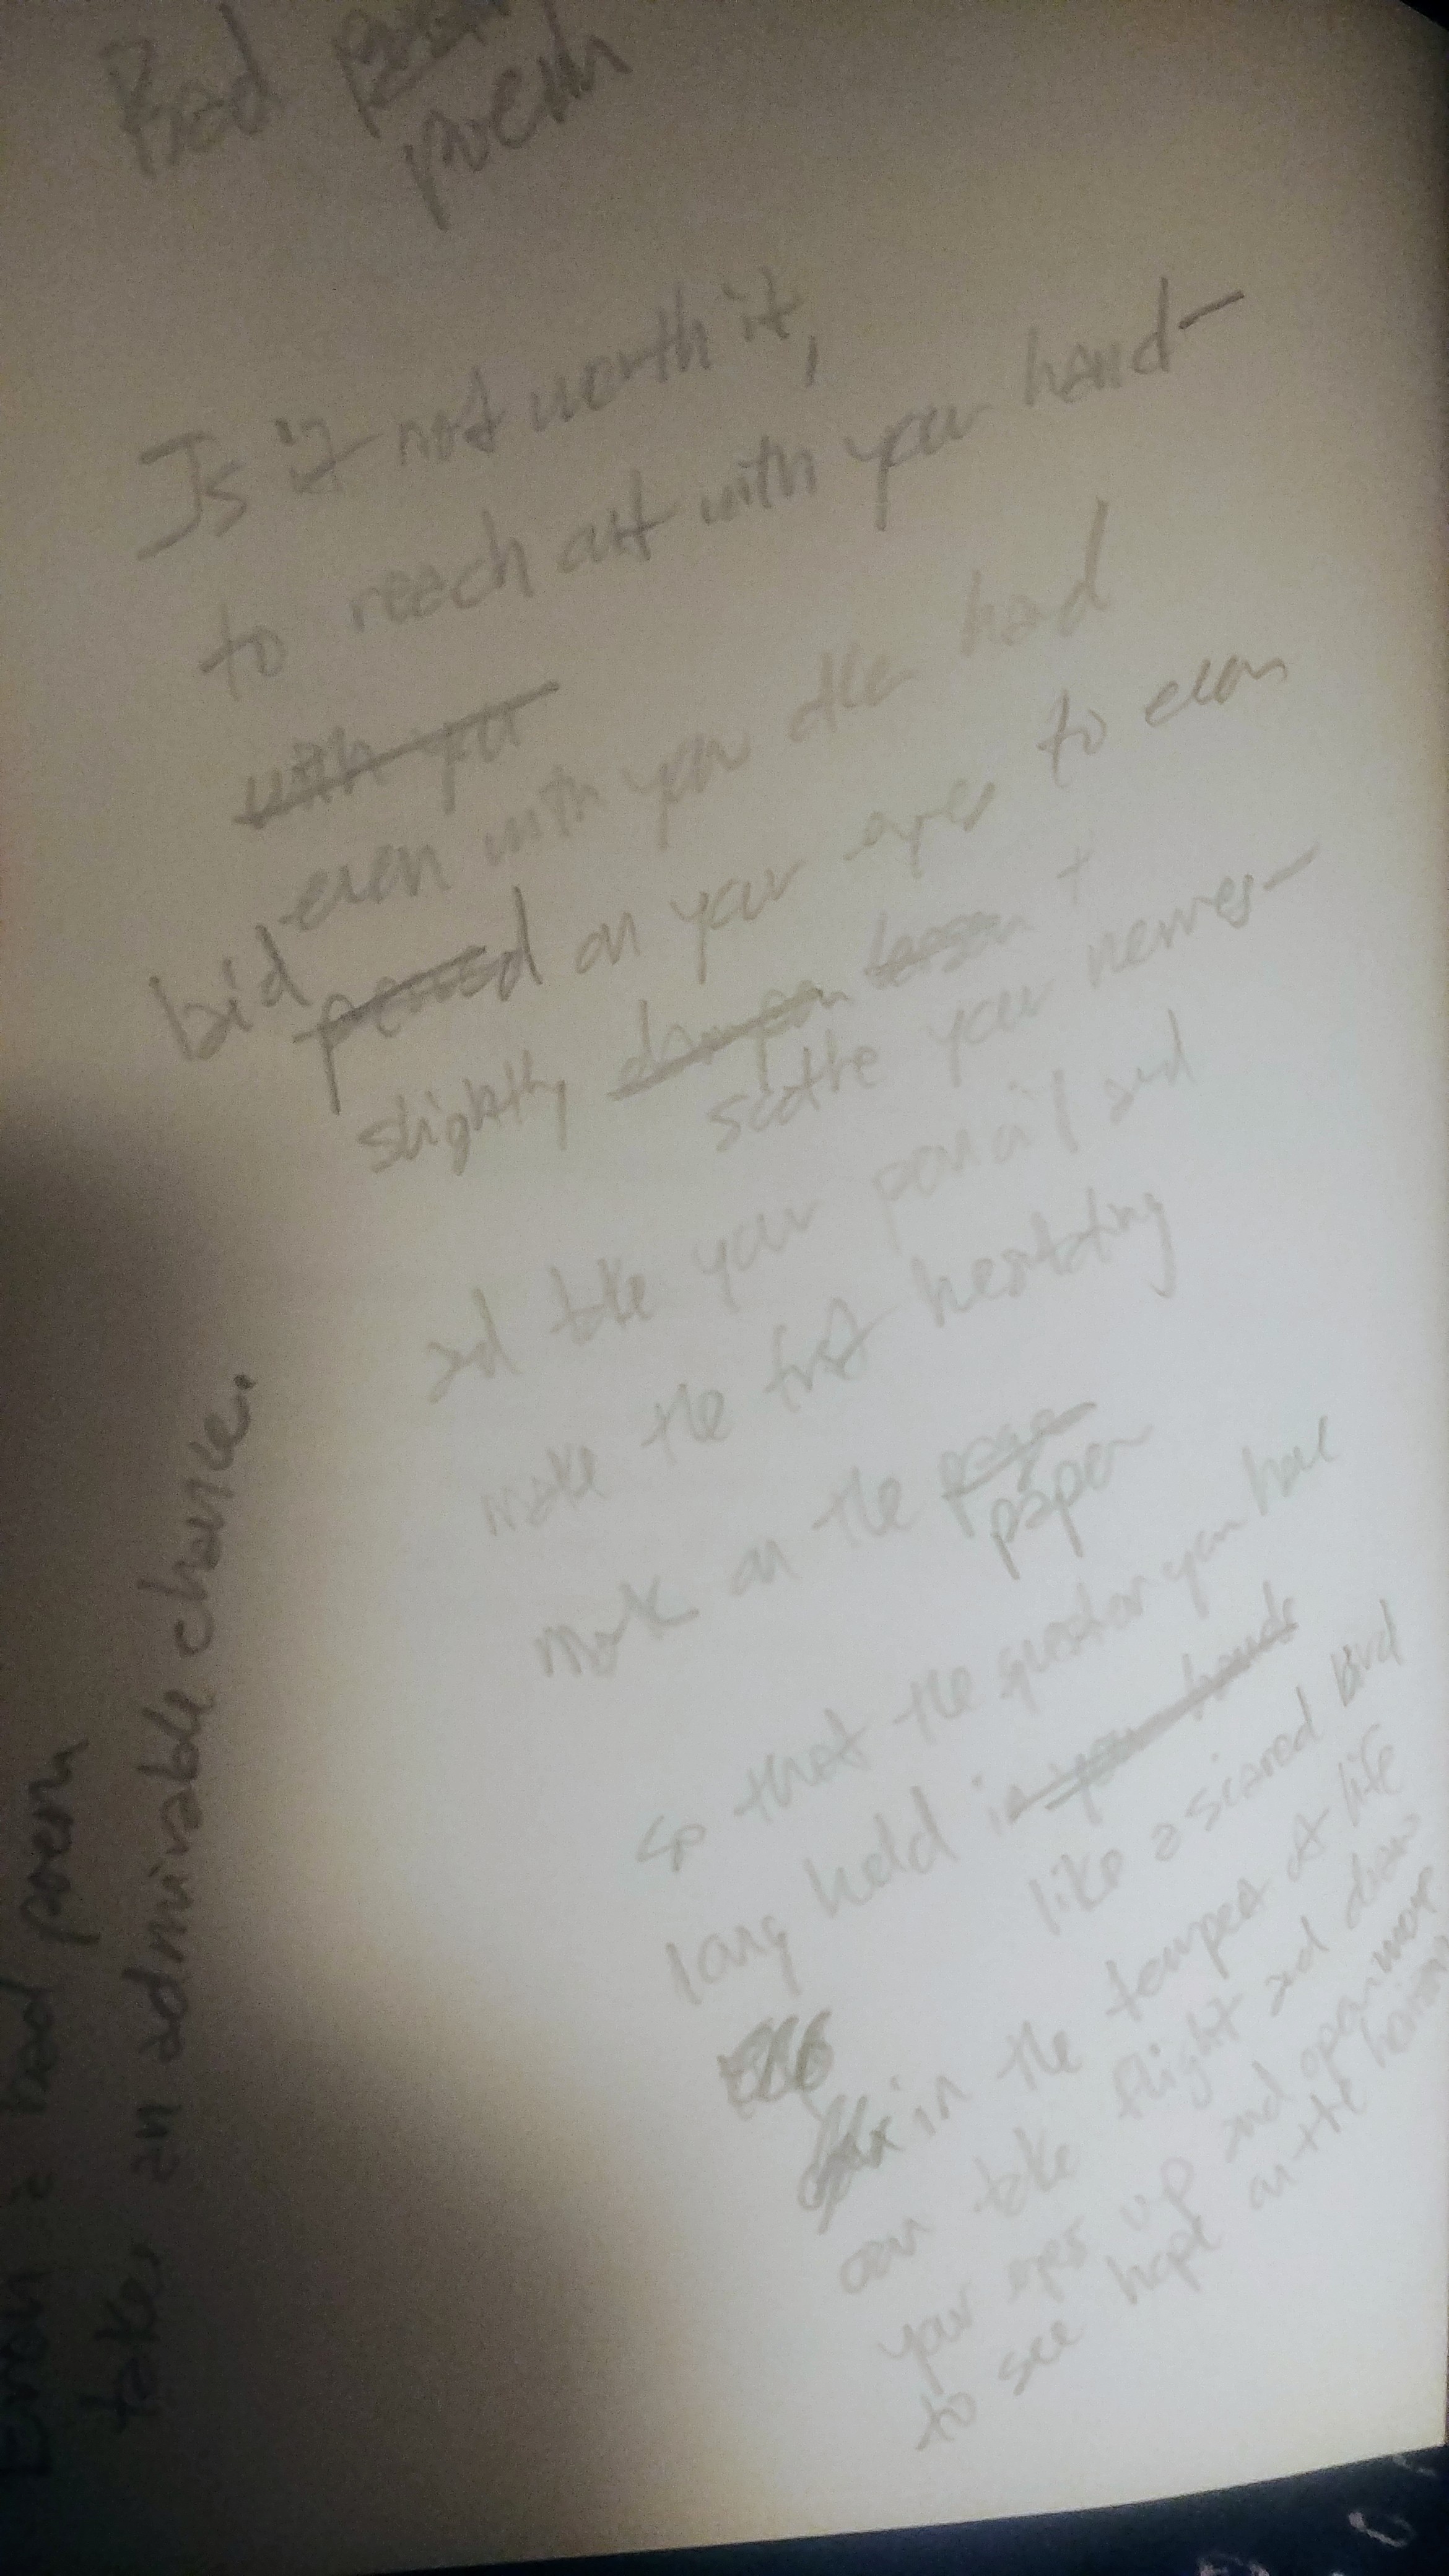 Bad
poem
Is it not worth it,
to reach out with your hand—
with your
even with your other hand
bid on your eyes to
slightly dampen loosen +
soothe your nerves—
and take your pencil and
make the first hesitating
mark on the page
paper
so that the question you have
long held in your hands
like a scared bird
in the tempest of life
can take flight and draw
your eyes up and open more
to see hope on the horizon
Even a bad poem
takes an admirable chance.